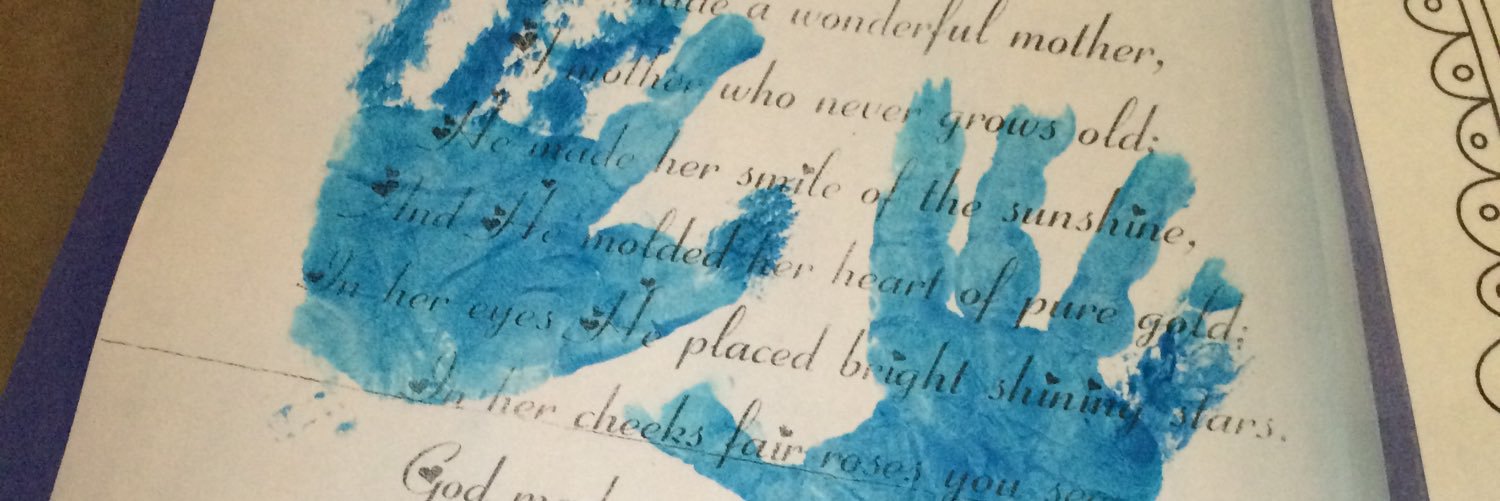 made a wonderful mother,
A mother who never grows old;
He made her smile of the sunshine,
And He molded her heart of pure gold;
In her eyes He placed bright shining stars.
In her cheeks fair roses you see
God